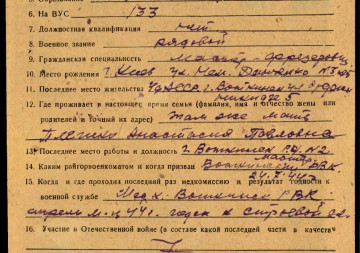 6. На ВУС 133
7. Должностная квалификация нет
8. Военное звание рядовой
9. Гражданская специальность фрезеровщик
10. Место рождения г. Киев ул. Нем. Данченко №3
11. Последнее место жительства УАССР г. Воткинск ул.
12. Где проживает в настоящее время семья (фамилия, имя и отчество жены или
родителей и точный их адрес) там же мать
Анастасия Павловна
13. Последнее место работы и должность г. Воткинск №2
14. Каким райгорвоенкоматом и когда призван Воткинским РВК
24.7.44
15. Когда и где проходил последний раз медкомиссию и результат годности к
военной службе Мед. к. Воткинск РВК
апрель м-ц 44 г. годен к строевой
16. Участие в Отечественной войне (в составе какой последней части в качестве